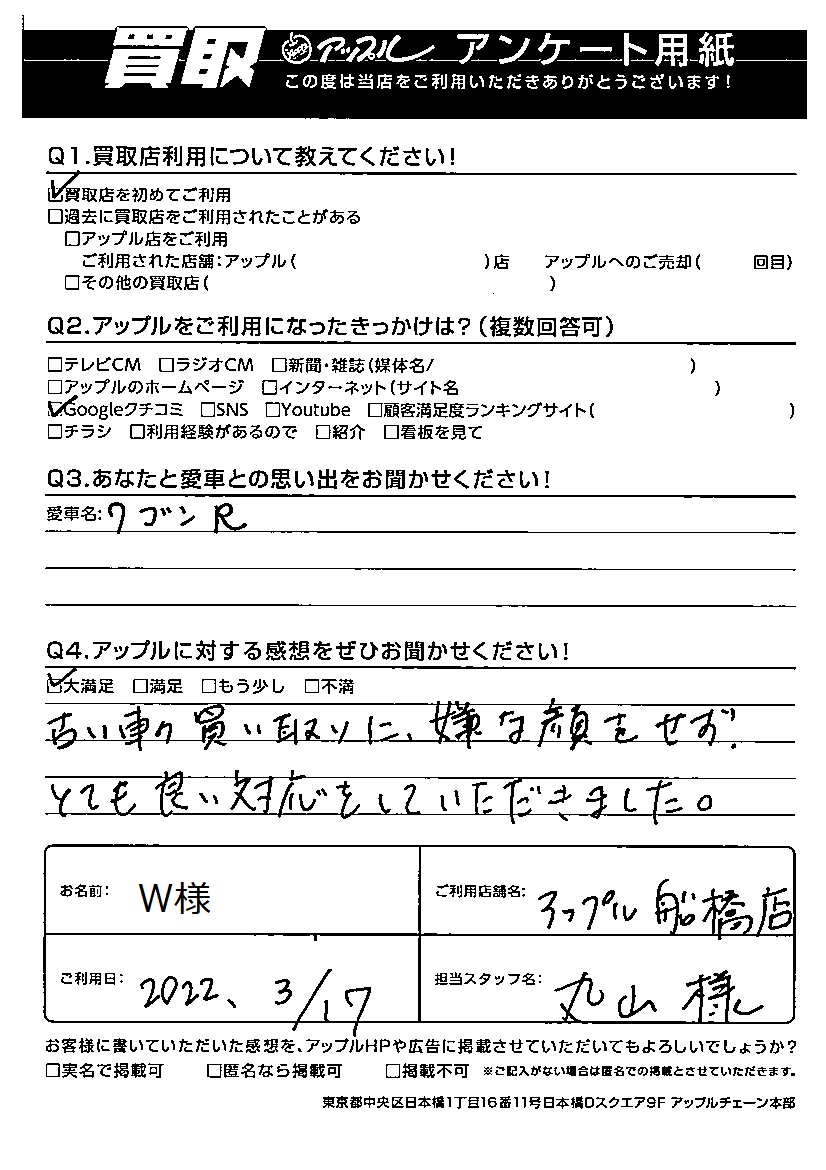 買取 アップル アンケート用紙
この度は当店をご利用いただきありがとうございます!
Q1.買取店利用について教えてください!
☑買取店を初めてご利用
□過去に買取店をご利用されたことがある
□アップル店をご利用
ご利用された店舗:アップル( )店 アップルへのご売却( 回目)
□その他の買取店( )
Q2.アップルをご利用になったきっかけは?(複数回答可)
□テレビCM □ラジオCM □新聞・雑誌(媒体名/ )
□アップルのホームページ □インターネット(サイト名 )
☑Googleクチコミ □SNS □Youtube □顧客満足度ランキングサイト( )
□チラシ □利用経験があるので □紹介 □看板を見て
Q3.あなたと愛車との思い出をお聞かせください!
愛車名:ワゴンR
Q4.アップルに対する感想をぜひお聞かせください!
☑大満足 □満足 □もう少し □不満
古い車の買い取りに、嫌な顔をせず、
とても良い対応をしていただきました。
お名前: W様 ご利用店舗名: アップル船橋店
ご利用日: 2022、3/17 担当スタッフ名: 丸山様
お客様に書いていただいた感想を、アップルHPや広告に掲載させていただいてもよろしいでしょうか?
□実名で掲載可 □匿名なら掲載可 □掲載不可 ※ご記入がない場合は匿名での掲載とさせていただきます。
東京都中央区日本橋1丁目16番11号日本橋Dスクエア9F アップルチェーン本部